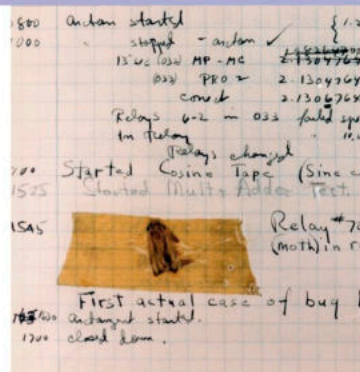 0800 antan started { 1.2
1000 " stopped - antan ✓
13" uc (032) MP - MC 2.1304764
(033) PRO 2 2.130476
conect 2.130676
Relays 6-2 in 033 failed spe
In Relay
Relays changed
Started Cosine Tape (Sine c
1525 Started Mult + Adder Test.
1545 Relay #70
(moth) in r
First actual case of bug b
antangent started.
1700 closed down.